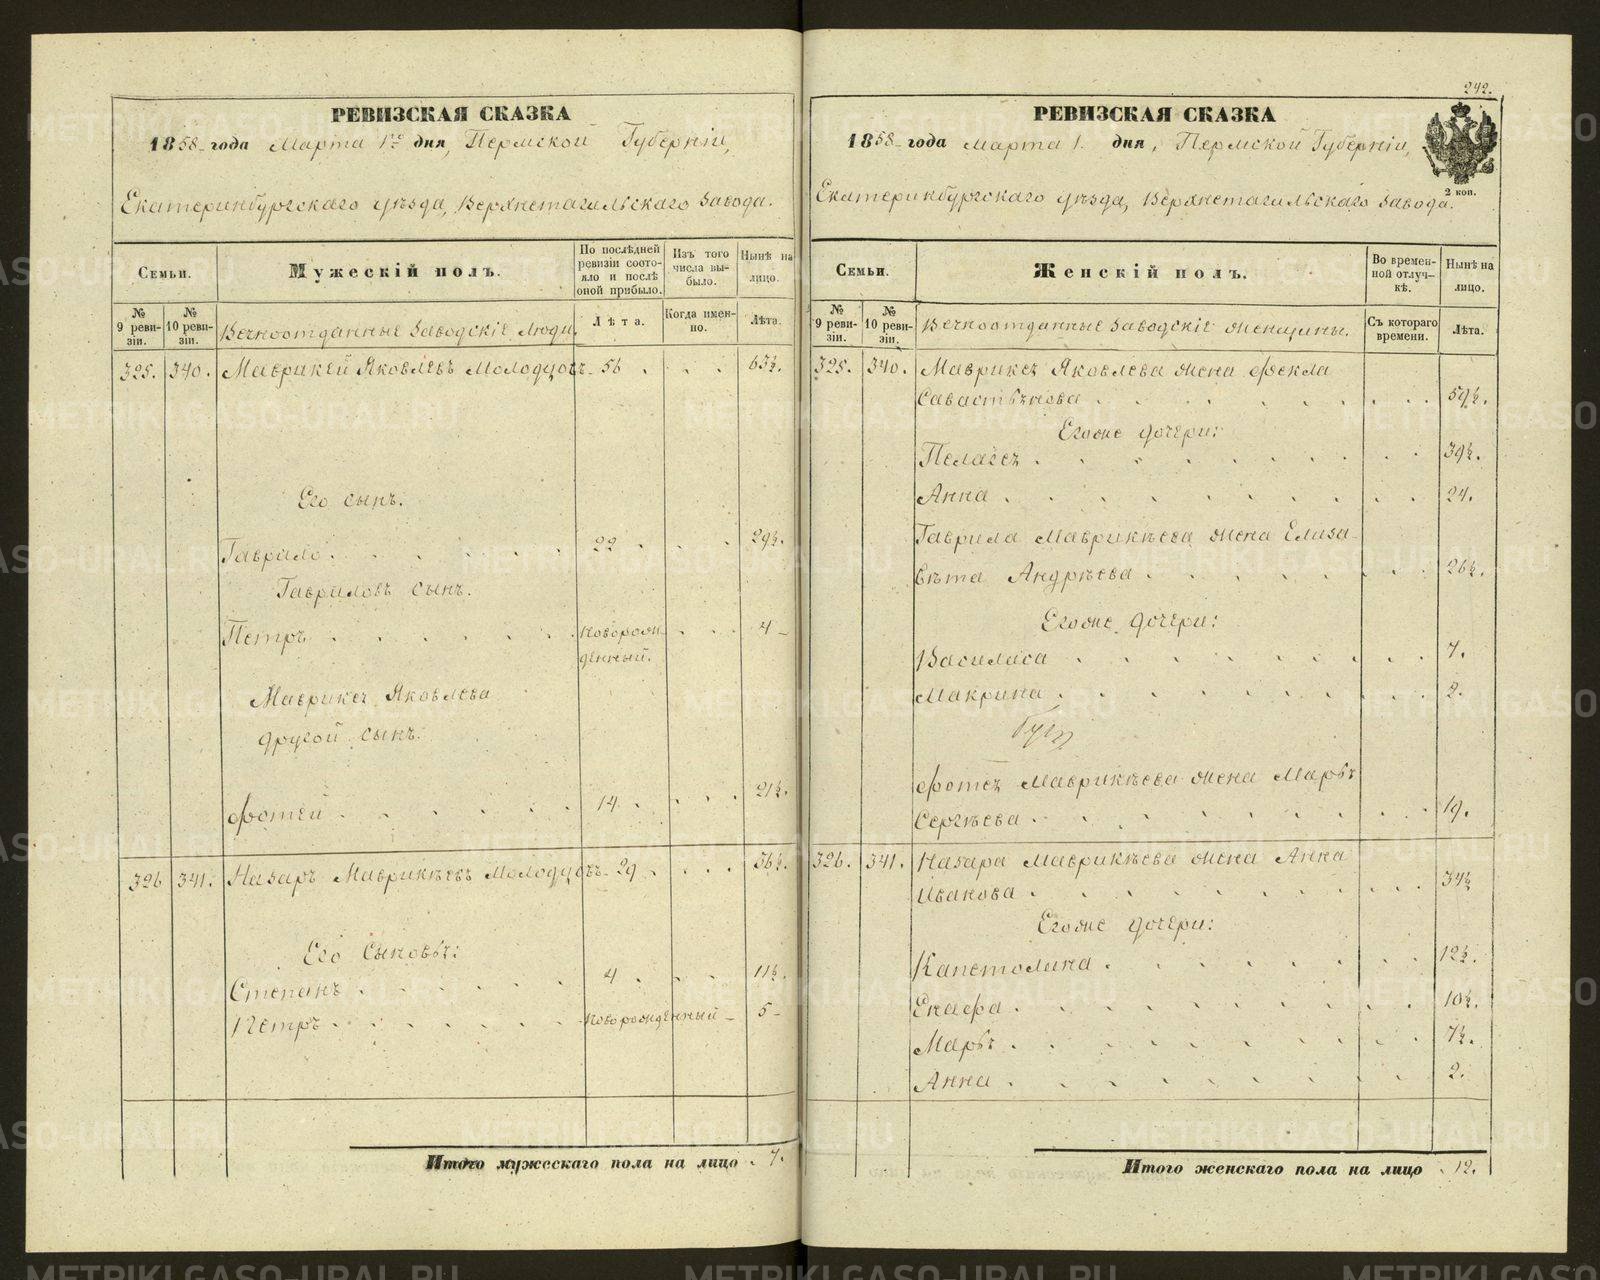 РЕВИЗСКАЯ СКАЗКА
1858 года Марта 1го дня, Пермской Губерніи,
Екатеринбургскаго уѣзда, Верхнетагильскаго завода.
Семьи.
Мужескій полъ.
По послѣдней ревизіи состояло и послѣ оной прибыло.
Изъ того числа выбыло.
Нынѣ на лицо.
№ 9 ревизіи.
№ 10 ревизіи.
Вечноотданные заводскіе люди.
Лѣта.
Когда именно.
Лѣта.
325. 340. Маврикей Яковлевъ Молодцовъ 56 . . . 63½.
Его сынъ.
Гаврило 22 . . . 29½.
Гавриловъ сынъ.
Петръ . . . новорож- 4 -
денный.
Маврикея Яковлева
другой сынъ.
Фотей . . . 14 . . . 21½.
326 341. Назаръ Маврикѣевъ Молодцовъ 29 . . . 36½.
Его сыновья:
Степанъ . . . 4 . . . 11½.
Петръ . . . новорожденный - 5 -
Итого мужескаго пола на лицо . 7.
242.
РЕВИЗСКАЯ СКАЗКА
1858 года марта 1. дня, Пермской Губерніи,
2 коп.
Екатеринбургскаго уѣзда, Верхнетагильскаго завода.
Семьи.
Женскій полъ.
Во временной отлучкѣ.
Нынѣ на лицо.
№ 9 ревизіи.
№ 10 ревизіи.
Вечноотданные заводскіе женщины.
Съ котораго времени.
Лѣта.
325. 340. Маврикея Яковлева жена Фекла
Савастьянова . . . 59½.
Егоже дочери:
Пелагея . . . 39½.
Анна . . . 24.
Гаврила Маврикѣева жена Елиза-
вѣта Андрѣева . . . 26½.
Егоже дочери:
Василиса . . . 7.
Макрина . . . 2.
Фотея Маврикѣева жена Марья
Сергѣева . . . 19.
326. 341. Назара Маврикѣева жена Анна
Иванова . . . 34½
Егоже дочери:
Капетолина . . . 12½.
Енафа . . . 10½.
Марья . . . 7½.
Анна . . . 2.
Итого женскаго пола на лицо . 12.
METRIKI.GASO-URAL.RU